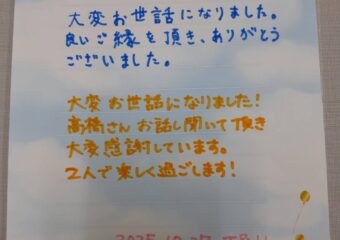 大変お世話になりました。
良いご縁を頂き、ありがとう
ございました。
大変お世話になりました!
高橋さんお話し聞いて頂き
大変感謝しています。
2人で楽しく過ごします!
2025.10.